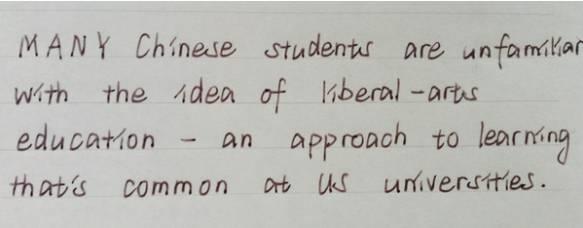 MANY Chinese students are unfamiliar
with the idea of liberal-arts
education - an approach to learning
that's common at US universities.